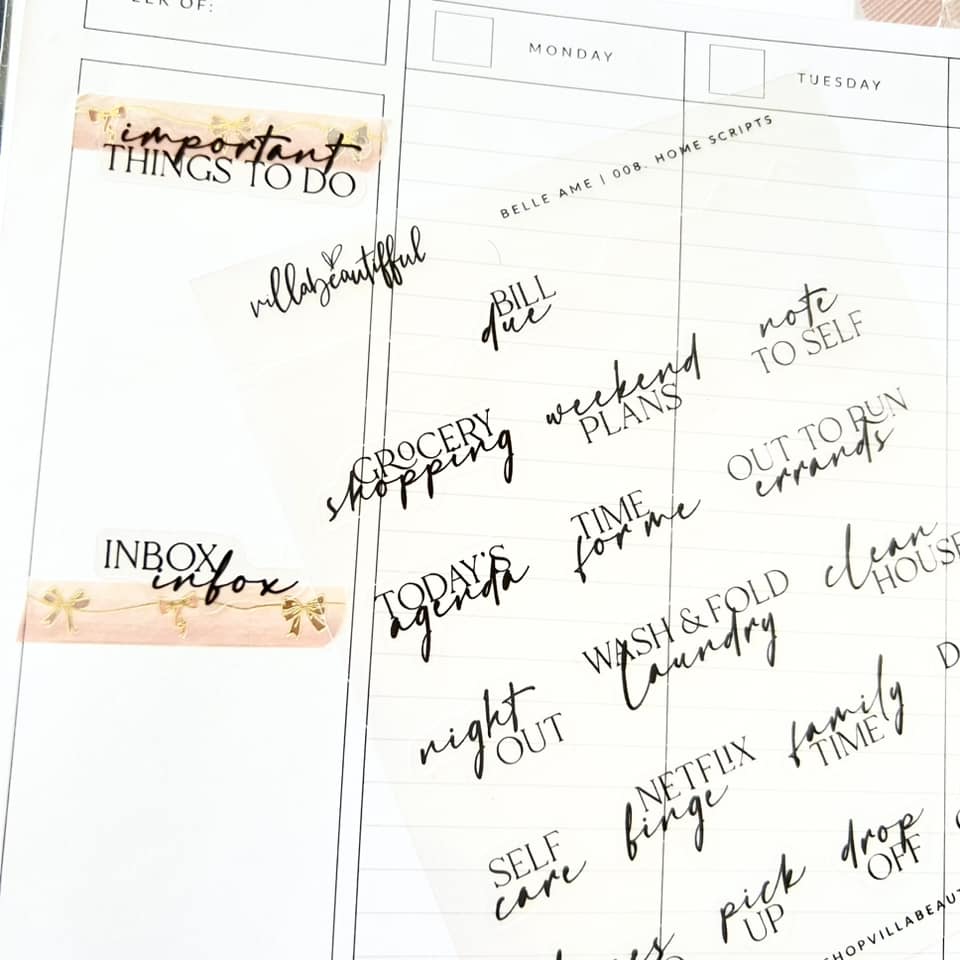 OF:
MONDAY
TUESDAY
important
THINGS TO DO
BELLE AME | 008. HOME SCRIPTS
villabeautifful
BILL
due
note
TO SELF
weekend
PLANS
GROCERY
shopping
OUT TO RUN
errands
TIME
for me
INBOX
infox
TODAY'S
agenda
clean
HOUSE
WASH & FOLD
laundry
night
OUT
family
TIME
NETFLIX
binge
SELF
care
drop
OFF
pick
UP
SHOPVILLABEAUT